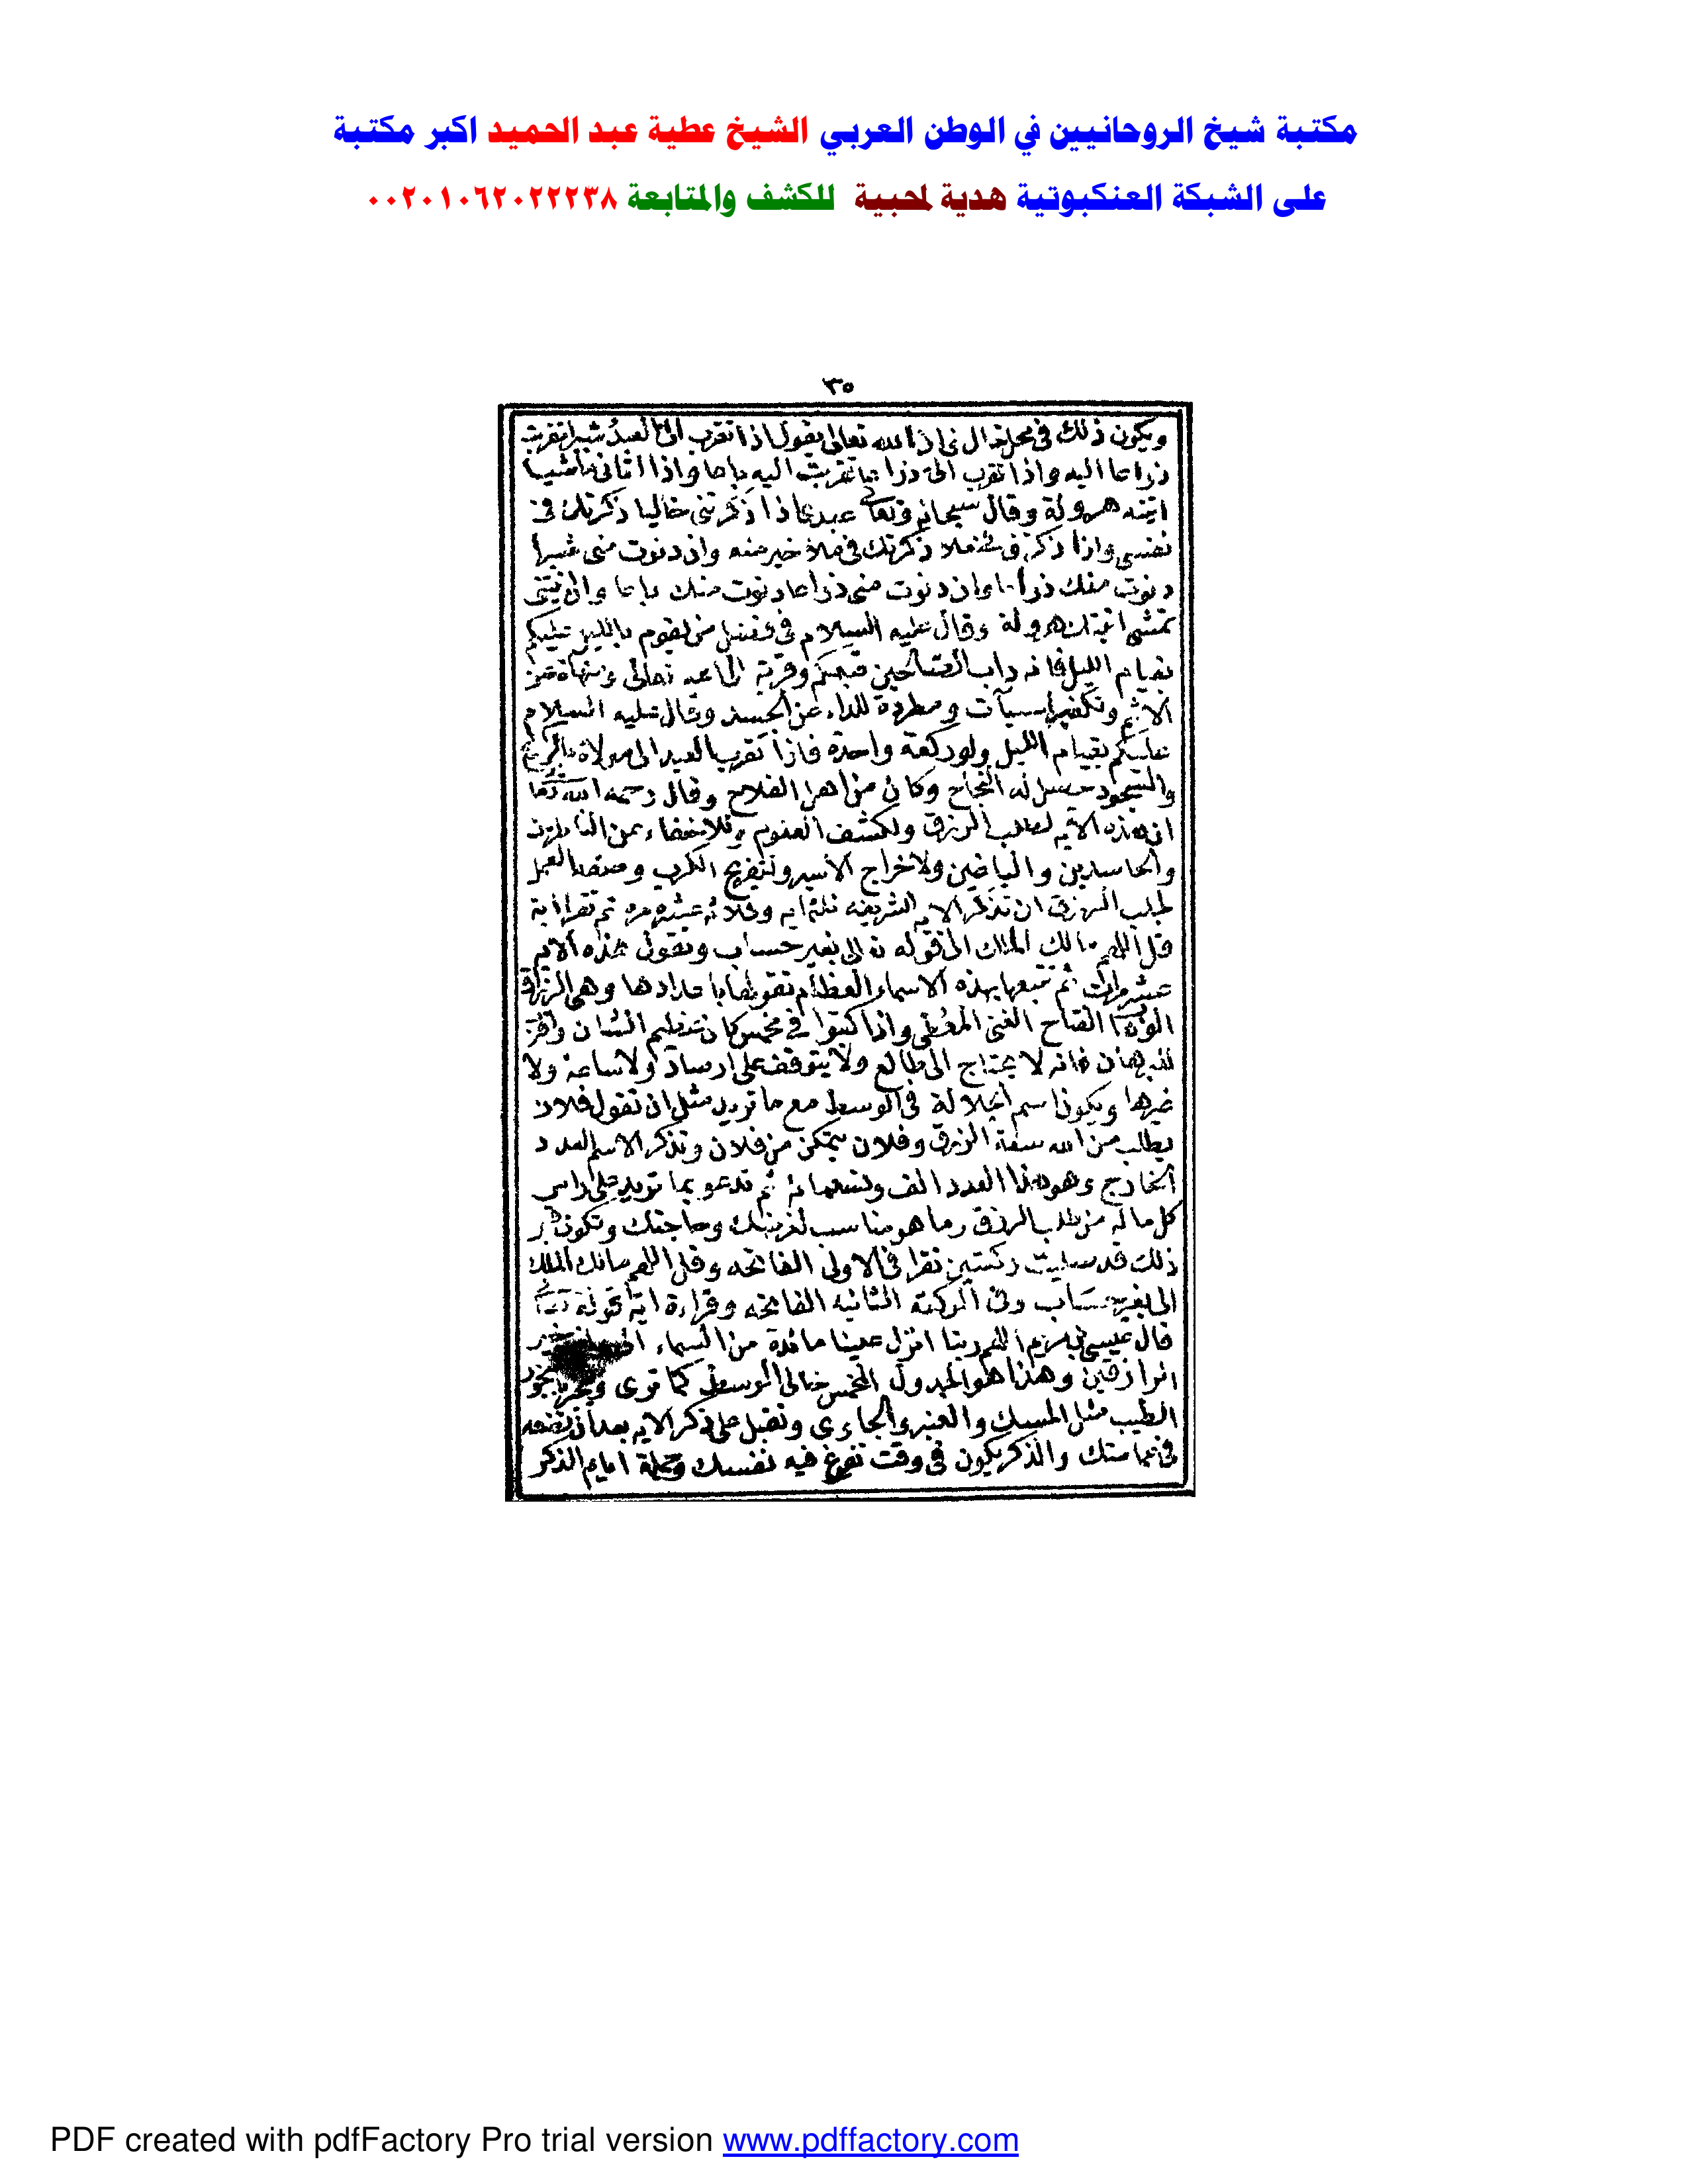 مكتبة شيخ الروحانيين في الوطن العربي الشيخ عطية عبد الحميد اكبر مكتبة
على الشبكة العنكبوتية هدية لمحبية للكشف والمتابعة ٠٠٢٠١٠٦٢٠٢٢٢٣٨
٣٥
ويكون ذلك في محل خال فان الله تعالى يقول اذا تقرب الي العبد شبرا تقربت
ذراعا اليه واذا تقرب الي ذراعا تقربت اليه باعا واذا اتاني ماشيا
اتيته هرولة وقال سبحانه وتعالى عبدي اذا ذكرتني خاليا ذكرتك في
نفسي واذا ذكرتني في ملا ذكرتك في ملا خير منه وان دنوت مني شبرا
دنوت منك ذراعا وان دنوت مني ذراعا دنوت منك باعا وان اتيتني
تمشي اتيتك هرولة وقال عليه السلام في فضل من يقوم بالليل عليكم
بقيام الليل فانه داب الصالحين قبلكم وقربة الى الله تعالى ومنهاة عن
الاثم وتكفير السيآت ومطردة للداء عن الجسد وقال عليه السلام
عليكم بقيام الليل ولو ركعة واحدة فاذا تقرب العبد الى مولاة بالركوع
والسجود حصل له النجاح وكان من اهل الفلاح وقال رحمه الله تعا
ان هذه الاية لطلب الرزق ولكشف العلوم وللاخفاء عن الناظرين
والحاسدين والباغضين ولاخراج الاسير ولتفريج الكرب وصفة العمل
لطلب الرزق ان تذكر الاية الشريفة ثلثماية وثلاثة عشر مره ثم تقرا اية
قل اللهم مالك الملك الى قوله تعالى بغير حساب وتقول هذه الاية
عشر مرات ثم تتبعها بهذه الاسماء العظام تقولها باعدادها وهي الرزاق
الوهاب الفتاح الغني المغني واذا كتبوا في مخمس كان عظيم الشان وافر
البرهان فانه لا يحتاج الى طالع ولا يتوقف على ارصاد ولا ساعة ولا
غيرها ويكون اسم الجلالة في الوسط مع ما تريد مثل ان تقول فلان
يطلب من الله سعة الرزق وفلان يتمكن من فلان وتذكر الاسم العدد
الخارج وهو هذا العدد الف وتسعمائة ثم تدعو بما تريد على راس
كل مائة من طلب الرزق وما هو مناسب لغرضك وحاجتك وتكون
ذلك قد صليت ركعتين تقرا في الاولى الفاتحه وقل اللهم مالك الملك
الى بغير حساب وفي الركعة الثانيه الفاتحه وقراءة اية قوله تعا
قال عيسى بن مريم اللهم ربنا انزل علينا مائدة من السماء الى خير
الرازقين وهذا هو الجدول المخمس خالي الوسط كما ترى
الطيب مثل المسك والعنبر والجاوي وتقبل على ذكر الاية بعد ان تضعه
في عمامتك والذكر يكون في وقت تفرغ فيه نفسك وجملة ايام الذكر
PDF created with pdfFactory Pro trial version www.pdffactory.com